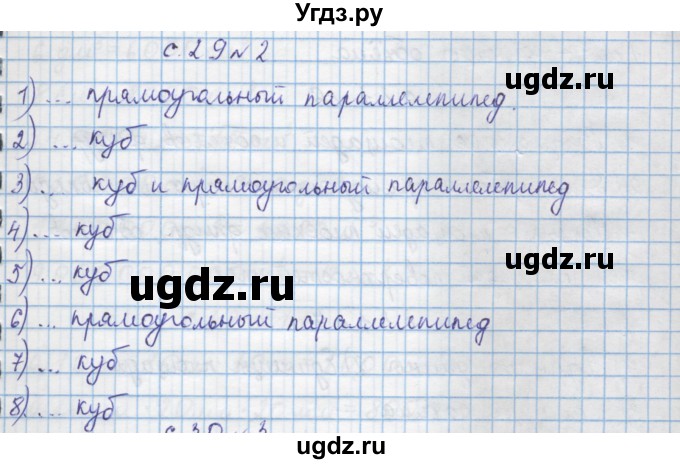 Угдз.ру
с. 29 № 2
ugdz.ru
1) ... прямоугольный параллелепипед.
2) ... куб
ugdz.ru
3) .. куб и прямоугольный параллелепипед
4) ... куб
ugdz.ru
5) ... куб
ugdz.ru
6) ... прямоугольный параллелепипед
7) ... куб
ugdz.ru
8) ... куб
ugdz.ru